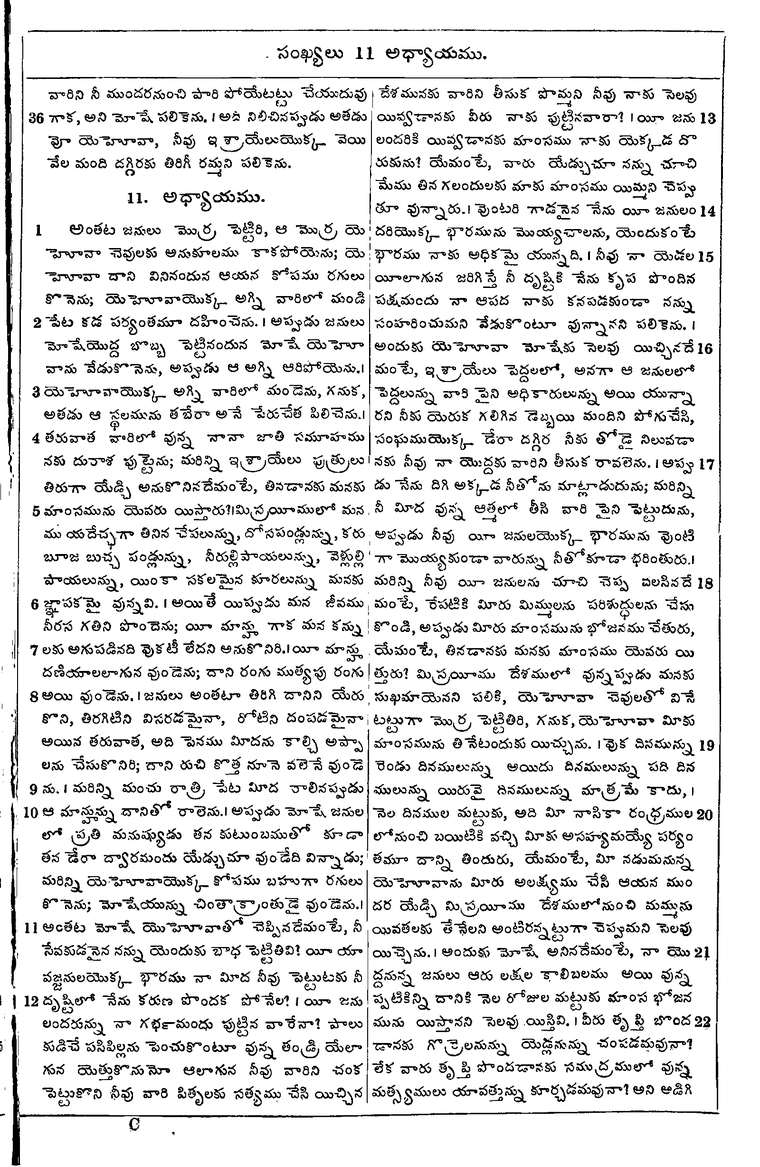 సంఖ్యలు 11 అధ్యాయము.
వారిని నీ ముందరనుంచి పారి పోయేటట్టు చేయుదువు
36 గాక, అని మోషే పలికెను. । అది నిలిచినప్పుడు అతడు
వో యెహోవా, నీవు ఇశ్రాయేలుయొక్క వెయి
వేల మంది దగ్గిరకు తిరిగీ రమ్మని పలికెను.
11. అధ్యాయము.
1 అంతట జనులు మొర్ర పెట్టిరి, ఆ మొర్ర యె
హోవా చెవులకు అనుకూలము కాకపోయెను; యె
హోవా దాని వినినందున ఆయన కోపము రగులు
కొనెను; యెహోవాయొక్క అగ్ని వారిలో మండి
2 పేట కడ పర్యంతమూ దహించెను. । అప్పుడు జనులు
మోషేయొద్ద బొబ్బ పెట్టినందున మోషే యెహో
వాను వేడుకొనెను, అప్పుడు ఆ అగ్ని ఆరిపోయెను. ।
3 యెహోవాయొక్క అగ్ని వారిలో మండెను, గనుక,
అతడు ఆ స్థలమును తవేరా అనే పేరుచేత పిలిచెను. ।
4 తరువాత వారిలో వున్న నానా జాతి సమూహము
నకు దురాశ పుట్టెను; మరిన్ని ఇశ్రాయేలు పుత్రులు
తిరుగా యేడ్చి అనుకొనినదేమంటే, తినడానకు మనకు
5 మాంసమును యెవరు యిస్తారు? । మిస్రయీములో మన
ము యదేచ్ఛగా తినిన చేపలున్ను, దోసపండ్లున్ను, కరు
బూజ బుచ్చ పండ్లున్ను, నీరుల్లిపాయలున్ను, వెల్లుల్లి
పాయలున్ను, యింకా సకలమైన కూరలున్ను మనకు
6 జ్ఞాపకమై వున్నవి. । అయితే యిప్పుడు మన జీవము
నీరస గతిని పొందెను; యీ మాన్హు గాక మన కన్ను
7 లకు అగుపడినది వుకటీ లేదని అనుకొనిరి. । యీ మాన్హు
దణియాలలాగున వుండెను; దాని రంగు ముత్యపు రంగు
8 అయి వుండెను. । జనులు అంతటా తిరిగి దానిని యేరు
కొని, తిరగటిని విసరడమైనా, రోటిని దంపడమైనా
అయిన తరువాత, అది పెనము మీదను కాల్చి అప్పా
లను చేసుకొనిరి; దాని రుచి కొత్త నూనె వలెనే వుండె
9 ను. । మరిన్ని మంచు రాత్రి పేట మీద రాలినప్పుడు
10 ఆ మాన్హున్ను దానితో రాలెను. । అప్పుడు మోషే జనుల
లో ప్రతి మనుష్యుడు తన కుటుంబముతో కూడా
తన డేరా ద్వారమందు యేడ్చుచూ వుండేది విన్నాడు;
మరిన్ని యెహోవాయొక్క కోపము బహుగా రగులు
కొనెను; మోషేయున్ను చింతాక్రాంతుడై వుండెను. ।
11 అంతట మోషే యెహోవాతో చెప్పినదేమంటే, నీ
సేవకుడనైన నన్ను యెందుకు బాధ పెట్టితివి? యీ యా
వజ్జనులయొక్క భారము నా మీద నీవు పెట్టుటకు నీ
12 దృష్టిలో నేను కరుణ పొందక పోనేల? । యీ జను
లందరున్ను నా గర్భమందు పుట్టిన వారేనా? పాలు
కుడిచే పసిపిల్లను పెంచుకొంటూ వున్న తండ్రి యేలా
గున యెత్తుకొనుమో ఆలాగున నీవు వారిని చంక
పెట్టుకొని నీవు వారి పితృలకు సత్యము చేసి యిచ్చిన
దేశమునకు వారిని తీసుక పొమ్మని నీవు నాకు సెలవు
యివ్వడానకు వీరు నాకు పుట్టినవారా? । యీ జను 13
లందరికి యివ్వడానకు మాంసము నాకు యెక్కడ దొ
రుకును? యేమంటే, వారు యేడ్చుచూ నన్ను చూచి
మేము తిన గలందులకు మాకు మాంసము యిమ్మని చెప్పు
తూ వున్నారు. । వుంటరి గాడనైన నేను యీ జనులం 14
దరియొక్క భారమును మొయ్యచాలను, యెందుకంటే
భారము నాకు అధికమై యున్నది. । నీవు నా యెడల 15
యీలాగున జరిగిస్తే నీ దృష్టికి నేను కృప పొందిన
పక్షమందు నా ఆపద నాకు కనపడకుండా నన్ను
సంహరించుమని వేడుకొంటూ వున్నానని పలికెను. ।
అందుకు యెహోవా మోషేకు సెలవు యిచ్చినదే 16
మంటే, ఇశ్రాయేలు పెద్దలలో, అనగా ఆ జనులలో
పెద్దలున్ను వారి పైని అధికారులున్ను అయి యున్నా
రని నీకు యెరుక గలిగిన డెబ్బయి మందిని పోగుచేసి,
సంఘముయొక్క డేరా దగ్గిర నీకు తోడై నిలువడా
నకు నీవు నా యొద్దకు వారిని తీసుక రావలెను. । అప్పు 17
డు నేను దిగి అక్కడ నీతోను మాట్లాడుదును; మరిన్ని
నీ మీద వున్న ఆత్మలో తీసి వారి పైని పెట్టుదును,
అప్పుడు నీవు యీ జనులయొక్క భారమును వుంటి
గా మొయ్యకుండా వారున్ను నీతోకూడా భరింతురు. ।
మరిన్ని నీవు యీ జనులను చూచి చెప్ప వలసినదే 18
మంటే, రేపటికి మీరు మిమ్ములను పరిశుద్ధులను చేసు
కొండి, అప్పుడు మీరు మాంసమును భోజనము చేతురు,
యేమంటే, తినడానకు మనకు మాంసము యెవరు యి
త్తురు? మిస్రయీము దేశములో వున్నప్పుడు మనకు
సుఖమాయెనని పలికి, యెహోవా చెవులతో వినే
టట్టుగా మొర్ర పెట్టితిరి, గనుక, యెహోవా మీకు
మాంసమును తినేటందుకు యిచ్చును. । వుక దినమున్ను 19
రెండు దినములున్ను అయిదు దినములున్ను పది దిన
ములున్ను యిరువై దినములున్ను మాత్రమే కాదు, ।
నెల దినముల మట్టుకు, అది మీ నాసికా రంధ్రముల 20
లోనుంచి బయిటికి వచ్చి మీకు అసహ్యమయ్యే పర్యం
తమూ దాన్ని తిందురు, యేమంటే, మీ నడుమనున్న
యెహోవాను మీరు అలక్ష్యము చేసి ఆయన ముం
దర యేడ్చి మిస్రయీము దేశములోనుంచి మమ్మును
యివతలకు తేనేలని అంటిరన్నట్టుగా చెప్పుమని సెలవు
యిచ్చెను. । అందుకు మోషే అనినదేమంటే, నా యొ 21
ద్దనున్న జనులు ఆరు లక్షల కాలిబలము అయి వున్న
ప్పటికిన్ని దానికి నెల రోజుల మట్టుకు మాంస భోజన
మును యిస్తానని సెలవు యిస్తివి. । వీరు తృప్తి బొంద 22
డానకు గొర్రెలనున్ను యెడ్లనున్ను చంపడమవునా?
లేక వారు తృప్తి పొందడానకు సముద్రములో వున్న
మత్స్యములు యావత్తున్ను కూర్చడమవునా? అని అడిగి
C